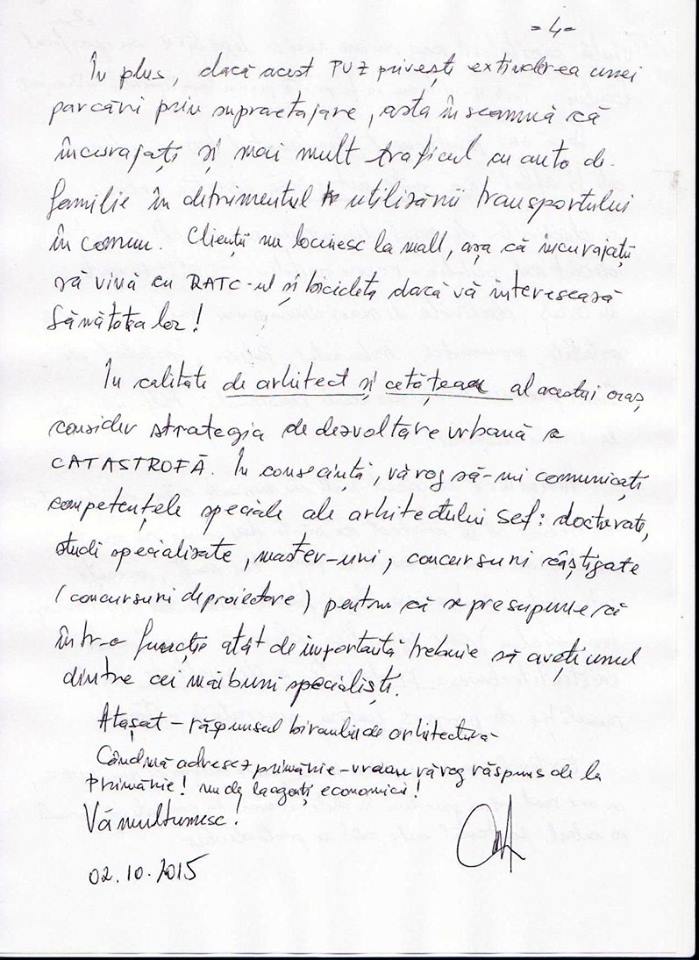 = 4 =
În plus, dacă acest PUZ privește extinderea unei
parcări prin supraetajare, asta înseamnă că
încurajați și mai mult traficul cu auto de
familie în detrimentul utilizării transportului
în comun. Clienții nu locuiesc la mall, așa că încurajați
să vivă cu RATC-ul și bicicleta dacă vă interesează
sănătatea lor!
În calitate de arhitect și cetățean al acestui oraș
consider strategia de dezvoltare urbană o
CATASTROFĂ. În consecință, vă rog să-mi comunicați
competențele speciale ale arhitectului șef: doctorate,
studii specializate, master-uri, concursuri câștigate
(concursuri de proiectare) pentru că se presupune că
într-o funcție atât de importantă trebuie să aveți unul
dintre cei mai buni specialiști.
Atașat - răspunsul biroului de arhitectură
Când mă adresez primărie - vreau vă rog răspuns de la
Primărie! nu de la agenți economici!
Vă mulțumesc!
02.10.2015